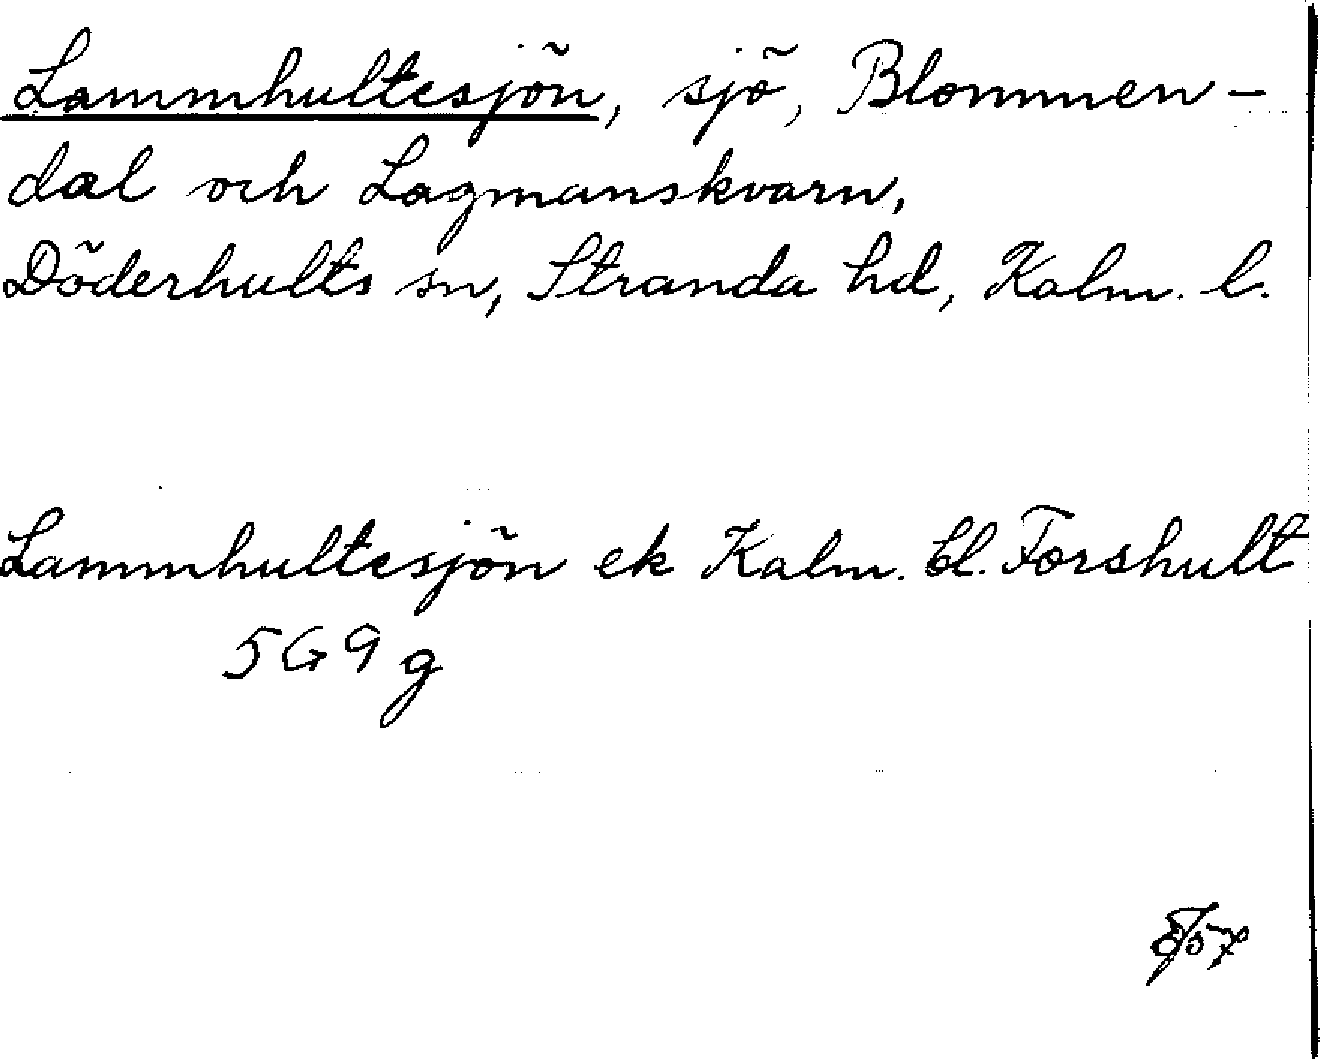 Lammhultesjön, sjö, Blommen-
dal och Lagmanskvarn,
Döderhults sn, Stranda hd, Kalm. l.
Lammhultesjön ek Kalm. bl. Forshult
5G9g